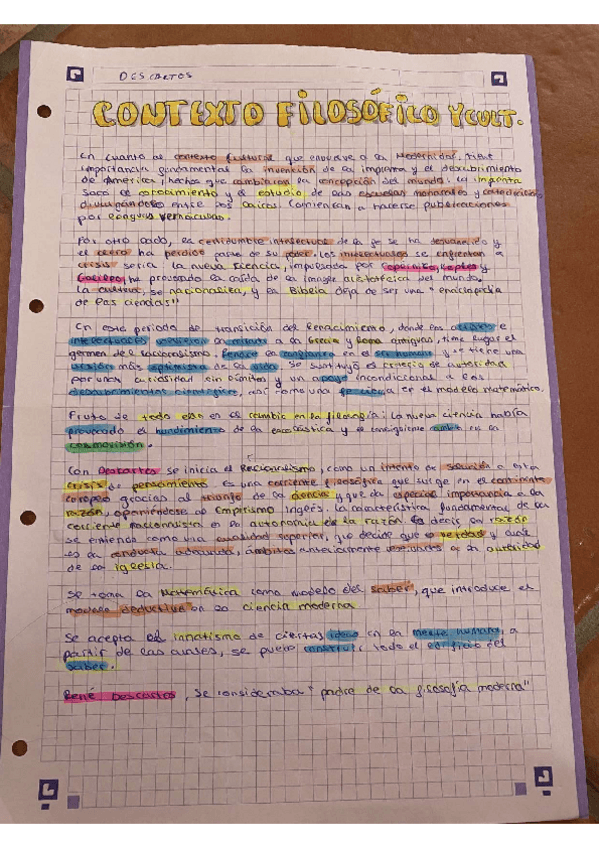 DESCARTES
CONTEXTO FILOSÓFICO Y CULT.
En cuanto al contexto cultural que envuelve a la Modernidad, tiene
importancia fundamental la invención de la imprenta y el descubrimiento
de América, hechos que cambiaron la concepción del mundo. La imprenta
saca el conocimiento y el estudio de las escuelas monacales y catedralicias,
divulgándolo entre los laicos. Comienzan a hacerse publicaciones
por lenguas vernáculas.
Por otro lado, la certidumbre intelectual de la fe se ha desvanecido y
el clero ha perdido parte de su poder. Los intelectuales se enfrentan a
crisis seria. La nueva ciencia, impulsada por Copérnico, Kepler y
Galileo, ha provocado la caída de la imagen aristotélica del mundo.
La cultura, se nacionaliza, y la Biblia deja de ser una "enciclopedia
de las ciencias"
En este periodo de transición del Renacimiento, donde los artistas e
intelectuales vuelven la mirada a la Grecia y Roma antiguas, tiene lugar el
germen del racionalismo. Renace la confianza en el ser humano y se tiene una
visión más optimista de la vida. Se sustituyó el criterio de autoridad
por una curiosidad sin límites y un apoyo incondicional a los
descubrimientos científicos, así como una fe ciega en el modelo matemático.
Fruto de todo ello es el cambio en la filosofía: la nueva ciencia había
provocado el hundimiento de la escolástica y el consiguiente cambio en la
cosmovisión.
Con Descartes se inicia el Racionalismo, como un intento de solución a esta
crisis de pensamiento. Es una corriente filosófica que surge en el continente
europeo gracias al triunfo de la ciencia y que da especial importancia a la
razón, oponiéndose al Empirismo inglés. La característica fundamental de la
corriente racionalista es la autonomía de la razón. Es decir, la razón
se entiende como una cualidad superior, que decide qué es verdad y cuál
es la conducta adecuada, ámbitos anteriormente reservados a la autoridad
de la iglesia.
Se toma la Matemática como modelo del saber, que introduce el
modelo deductivo en la ciencia moderna
Se acepta el innatismo de ciertas ideas en la mente humana, a
partir de las cuales, se puede construir todo el edificio del
saber.
René Descartes, se consideraba "padre de la filosofía moderna"